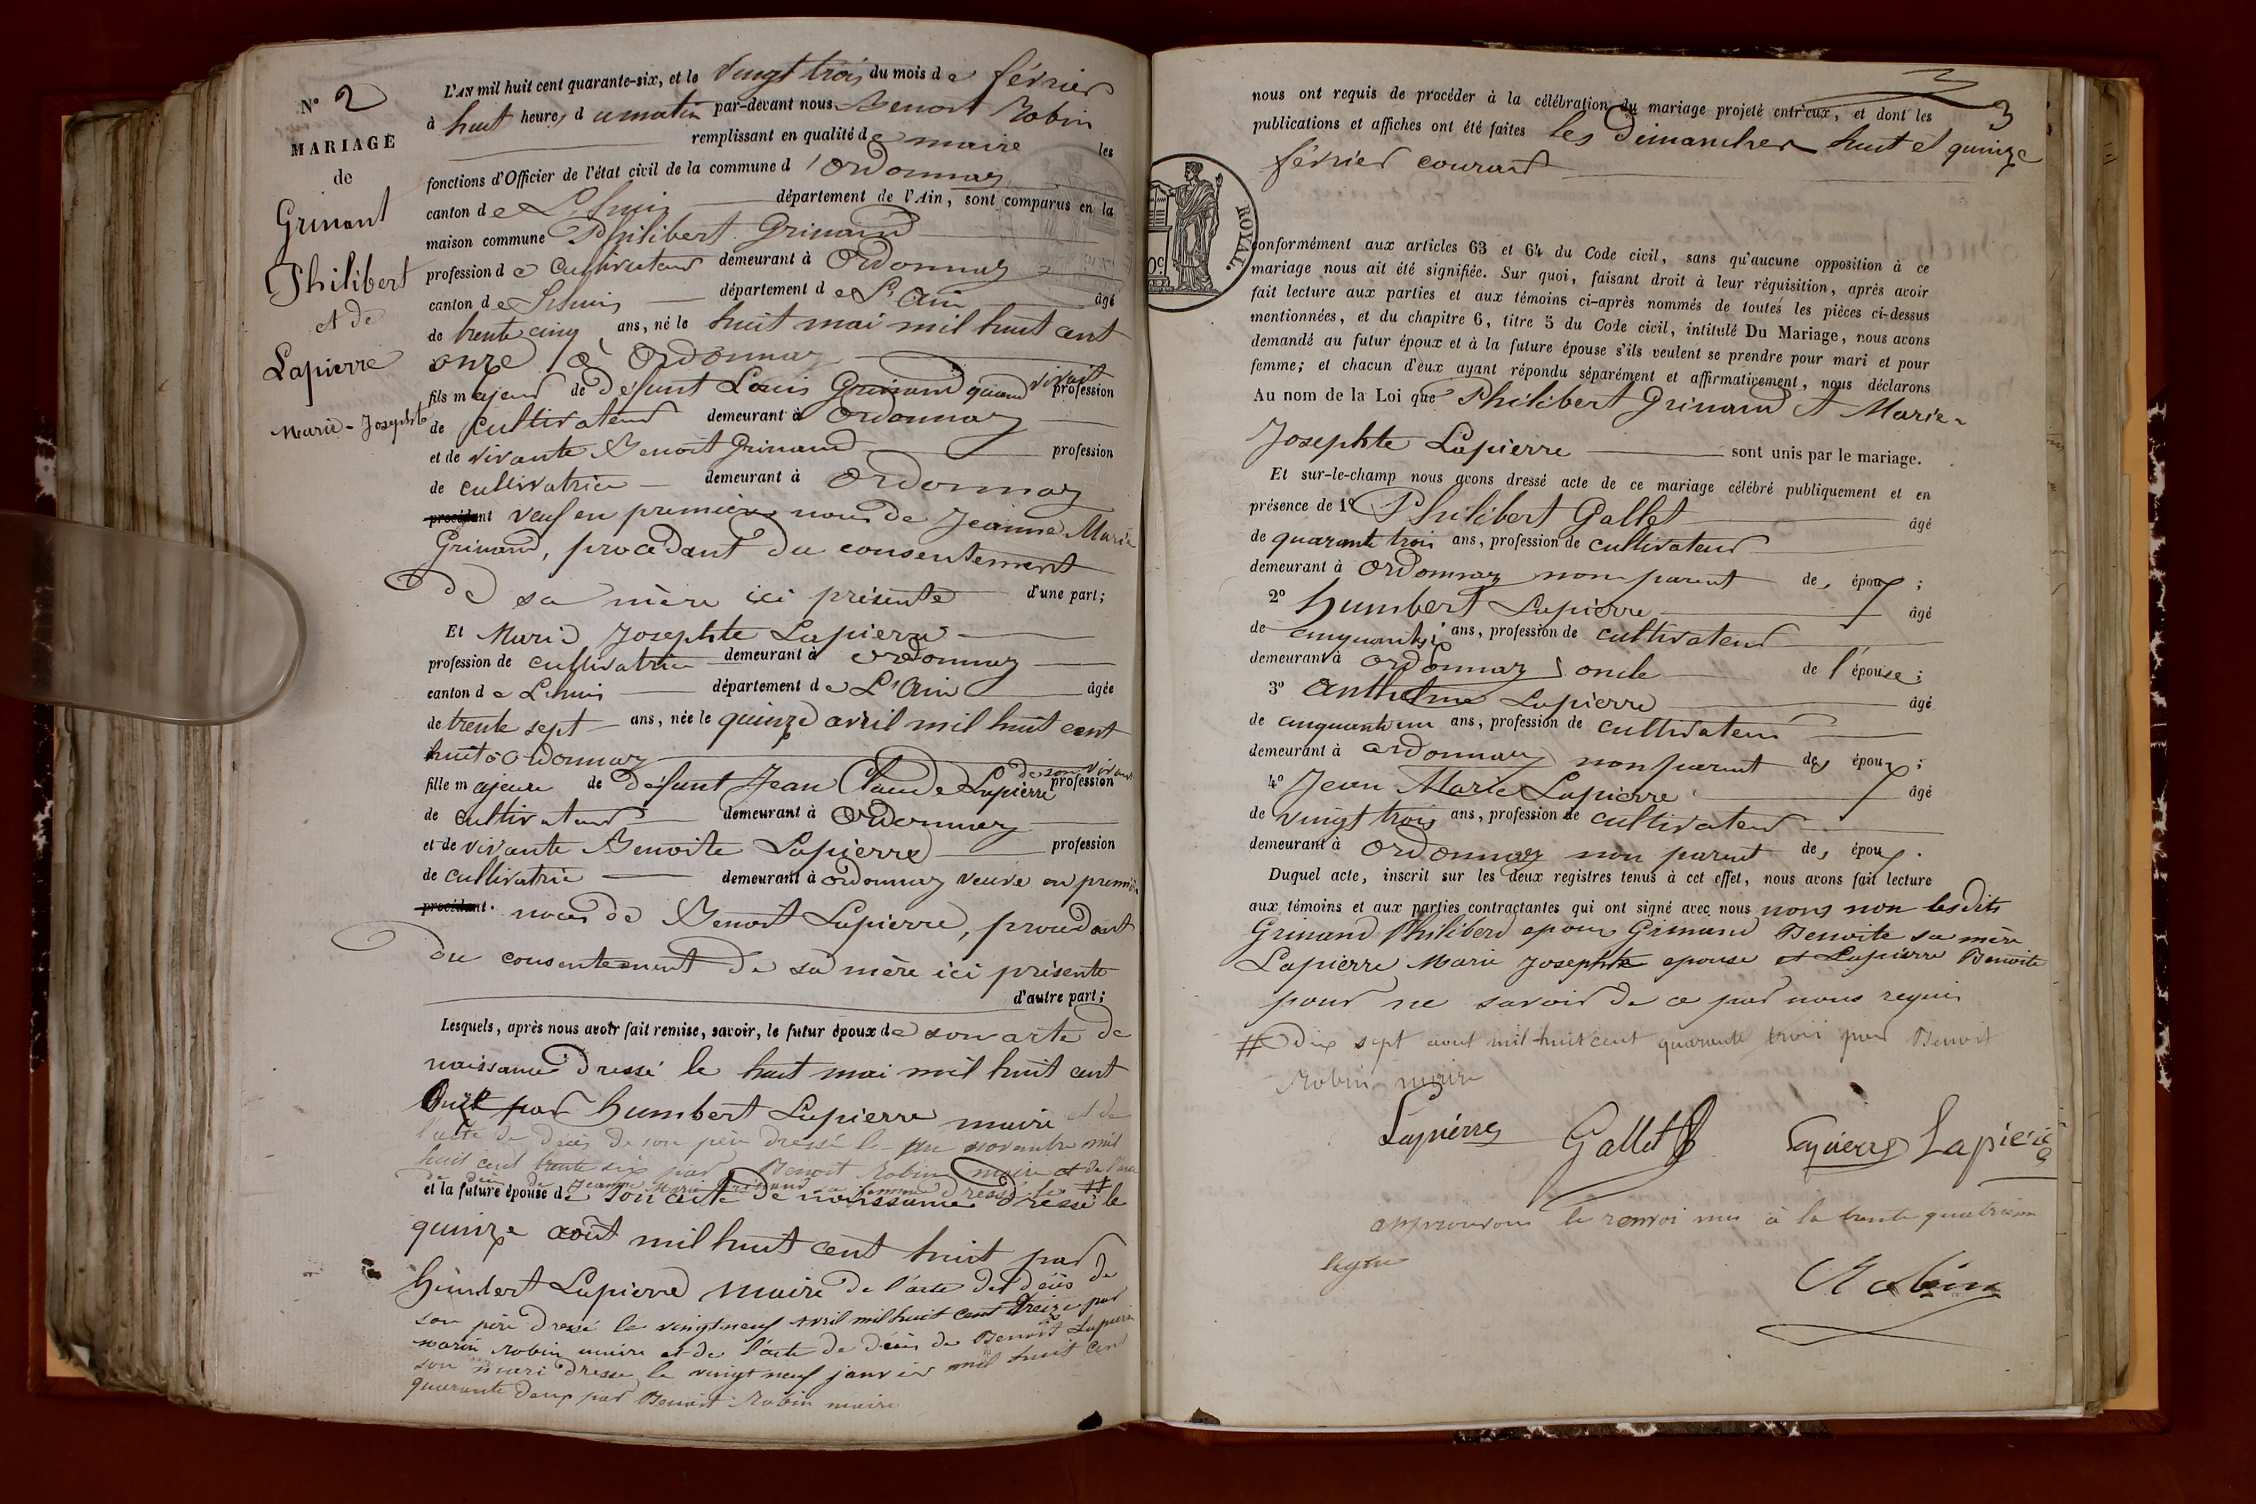 N° 2
MARIAGE
de
Grinant
Philibert
et de
Lapierre
Marie-Josephte
L'AN mil huit cent quarante-six, et le vingt trois du mois de février
à huit heures du matin par-devant nous Benoit Robin
remplissant en qualité de maire les
fonctions d'Officier de l'état civil de la commune d'Ordonnaz
canton de Lhuis département de l'Ain, sont comparus en la
maison commune Philibert Grinand
profession de cultivateur demeurant à Ordonnaz
canton de Lhuis département de L'Ain âgé
de trente cinq ans, né le huit mai mil huit cent
onze à Ordonnaz
fils majeur de défunt Louis Grinand quand vivait profession
de cultivateur demeurant à Ordonnaz
et de vivante Benoit Grinand profession
de cultivatrice demeurant à Ordonnaz
procédant veuf en premières noces de Jeanne Marie
Grinand, procédant du consentement
de sa mère ici présente d'une part;
Et Marie Josephte Lapierre
profession de cultivatrice demeurant à Ordonnaz
canton de Lhuis département de L'Ain âgée
de trente sept ans, née le quinze avril mil huit cent
huit à Ordonnaz
fille majeure de défunt Jean Claude Lapierre de son vivant profession
de cultivateur demeurant à Ordonnaz
et de vivante Benoite Lapierre profession
de cultivatrice demeurant à Ordonnaz veuve en première
procédant noces de Benoit Lapierre, procédant
du consentement de sa mère ici présente
d'autre part;
Lesquels, après nous avoir fait remise, savoir, le futur époux de son acte de
naissance dressé le huit mai mil huit cent
Onze par Humbert Lapierre maire et de
l'acte de décès de son père dressé le novembre mil
huit cent trente six par Benoit Robin maire et de l'acte
de décès de Jeanne Marie Grinand sa femme dressé le #
et la future épouse de son acte de naissance dressé le
quinze août mil huit cent huit par
Humbert Lapierre maire de l'acte de décès de
son père dressé le vingt neuf avril mil huit cent treize par
marin Robin maire et de l'acte de décès de Benoit Lapierre
son mari dressé le vingt neuf janvier mil huit cent
quarante deux par Benoit Robin maire
3
nous ont requis de procéder à la célébration du mariage projeté entr'eux, et dont les
publications et affiches ont été faites les dimanches huit et quinze
février courant
ROYAL.
conformément aux articles 63 et 64 du Code civil, sans qu'aucune opposition à ce
mariage nous ait été signifiée. Sur quoi, faisant droit à leur réquisition, après avoir
fait lecture aux parties et aux témoins ci-après nommés de toutes les pièces ci-dessus
mentionnées, et du chapitre 6, titre 5 du Code civil, intitulé Du Mariage, nous avons
demandé au futur époux et à la future épouse s'ils veulent se prendre pour mari et pour
femme; et chacun d'eux ayant répondu séparément et affirmativement, nous déclarons
Au nom de la Loi que Philibert Grinand et Marie-
Josephte Lapierre sont unis par le mariage.
Et sur-le-champ nous avons dressé acte de ce mariage célébré publiquement et en
présence de 1° Philibert Gallet âgé
de quarante trois ans, profession de cultivateur
demeurant à Ordonnaz non parent des époux;
2° Humbert Lapierre âgé
de ans, profession de cultivateur
demeurant à Ordonnaz oncle de l'épouse;
3° Anthelme Lapierre âgé
de cinquante un ans, profession de cultivateur
demeurant à Ordonnaz non parent des époux;
4° Jean Marie Lapierre âgé
de vingt trois ans, profession de cultivateur
demeurant à Ordonnaz non parent des époux.
Duquel acte, inscrit sur les deux registres tenus à cet effet, nous avons fait lecture
aux témoins et aux parties contractantes qui ont signé avec nous non lesdits
Grinand Philiberd epoux Grinand Benoite sa mère
Lapierre Marie Josephte epouse et Lapierre Benoite
pour ne savoir de ce par nous requis
# Dix sept aout mil huit cent quarante trois par Benoit
Robin maire
Lapierre Gallet Lapierre Lapierre
approuvons le renvoi mis à la trente quatrieme
ligne
Robin